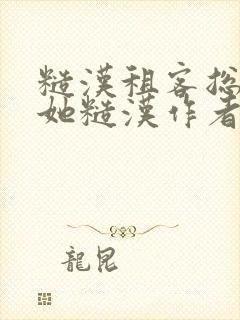 糙漢租客搃
她糙漢作者
龍昆